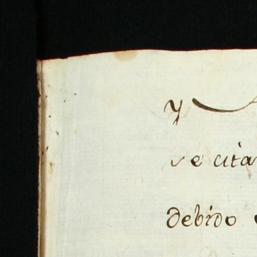 y
se cita
debido